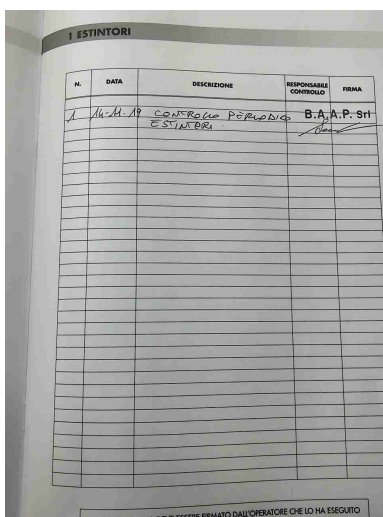 1 ESTINTORI
N. DATA DESCRIZIONE RESPONSABILE CONTROLLO FIRMA
1 14-11-19 CONTROLLO PERIODICO B.A.A.P. Srl
ESTINTORI
ESSERE FIRMATO DALL'OPERATORE CHE LO HA ESEGUITO